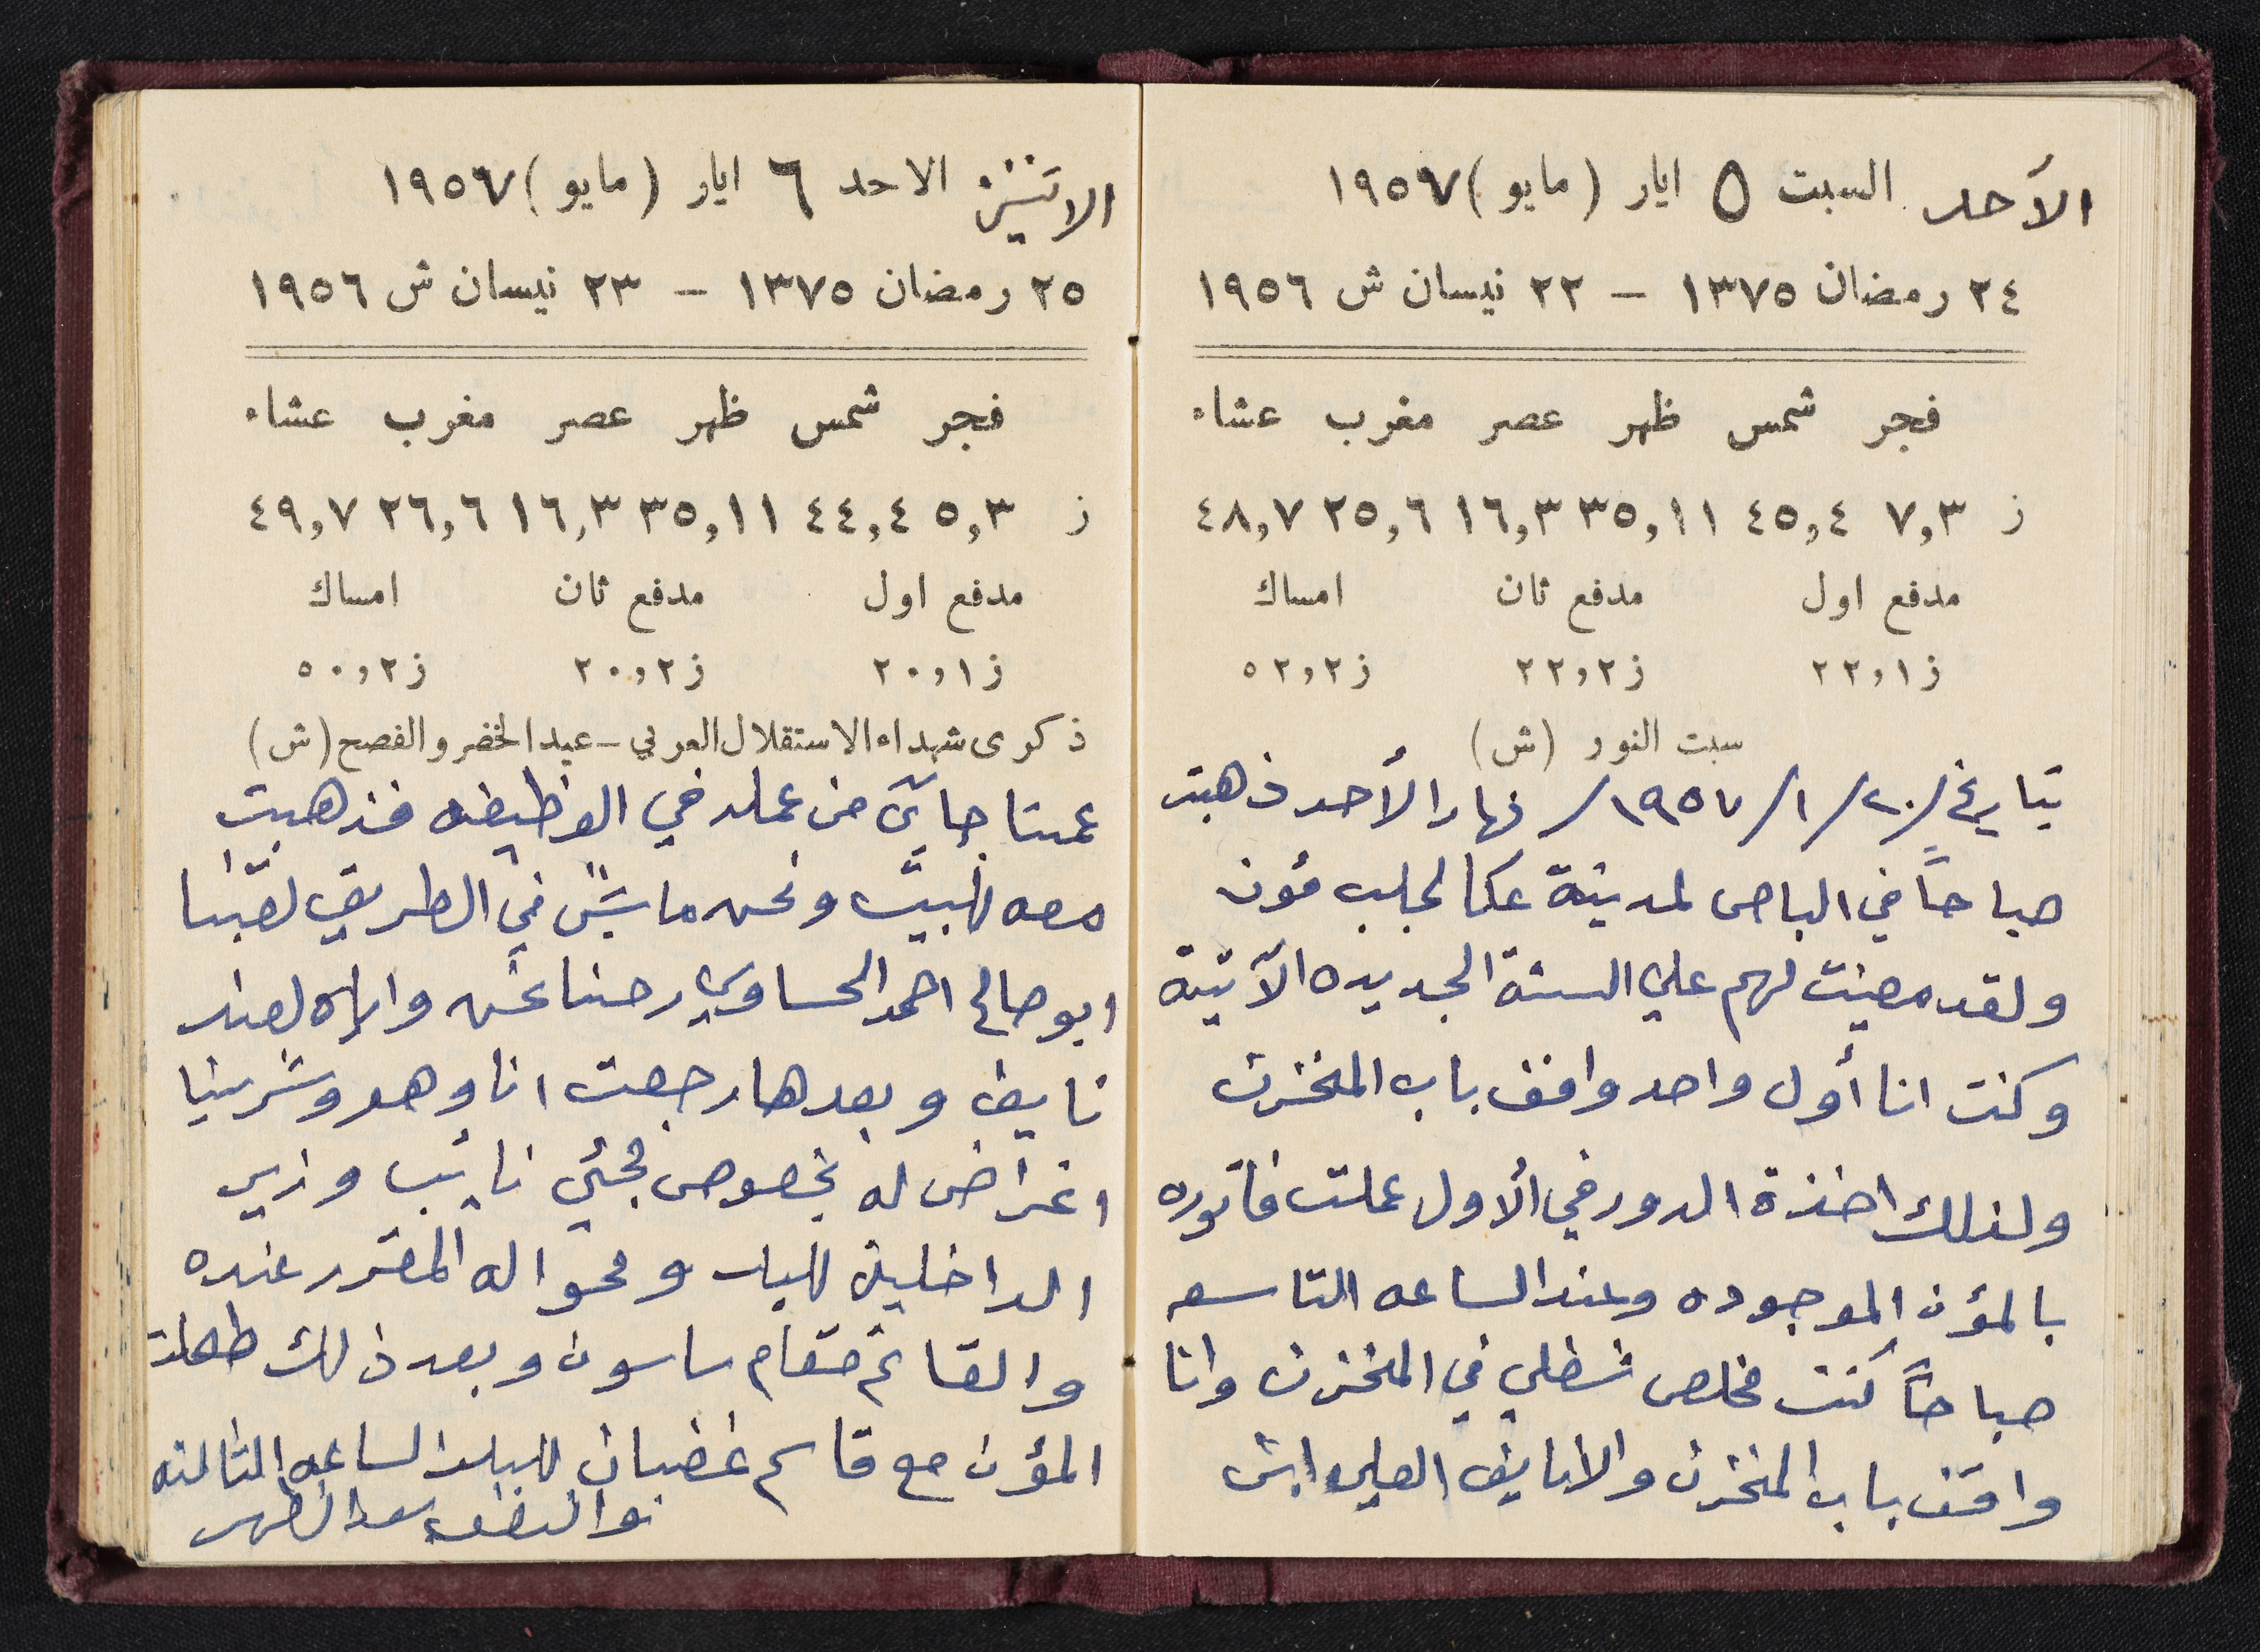 الأحد السبت ٥ ايار (مايو) ١٩٥٧
٢٤ رمضان ١٣٧٥ – ٢٢ نيسان ش ١٩٥٦
فجر شمس ظهر عصر مغرب عشاء
ز ٧,٣ ٤٥,٤ ٣٥,١١ ١٦,٣ ٢٥,٦ ٤٨,٧
مدفع اول مدفع ثان امساك
ز ٢٢,١ ز ٢٢,٢ ز ٥٢,٢
سبت النور (ش)
بتاريخ ٢٠/١/١٩٥٧/ نهار الأحد ذهبت
صباحاً في الباص لمدينة عكا لجلب مؤن
ولقد مضيت لهم علي السنة الجديده الآتية
وكنت انا أول واحد واقف باب المخزن
ولذلك اخذة الدور في الأول عملت فاتوره
بالمؤن الموجوده وعند الساعه التاسعه
صباحاً كنت مخلص شغلي في المخزن وانا
واقف باب المخزن والا نايف العلي ابن
الاثنين الاحد ٦ ايار (مايو) ١٩٥٧
٢٥ رمضان ١٣٧٥ – ٢٣ نيسان ش ١٩٥٦
فجر شمس ظهر عصر مغرب عشاء
ز ٥,٣ ٤٤,٤ ٣٥,١١ ١٦,٣ ٢٦,٦ ٤٩,٧
مدفع اول مدفع ثان امساك
ز ٢٠,١ ز ٢٠,٢ ز ٥٠,٢
ذكرى شهداء الاستقلال العربي – عيد الخضر والفصح (ش)
عمتا جاي من عمله في الوظيفه فذهبت
معه للبيت ونحن ماشين في الطريق لقينا
ابو صالح احمد الحساوي رحنا نحن واياه لعند
نايف وبعدها رجعت انا وهو وشرينا
اغراض له بخصوص مجئي نايب وزير
الداخلية للبلد ونحو اله المقرر عنده
والقائم مقام ساسون وبعد ذلك طلعت
المؤن مع قاسم غضبان للبلد الساعه الثالثه
والنصف بعد الظهر